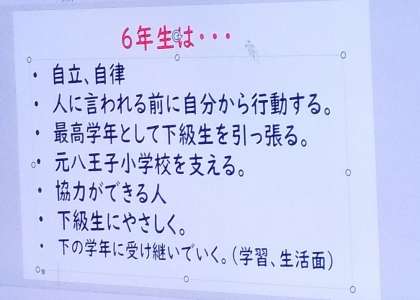 6年生は・・・
・ 自立、自律
・ 人に言われる前に自分から行動する。
・ 最高学年として下級生を引っ張る。
・ 元八王子小学校を支える。
・ 協力ができる人
・ 下級生にやさしく。
・ 下の学年に受け継いでいく。(学習、生活面)